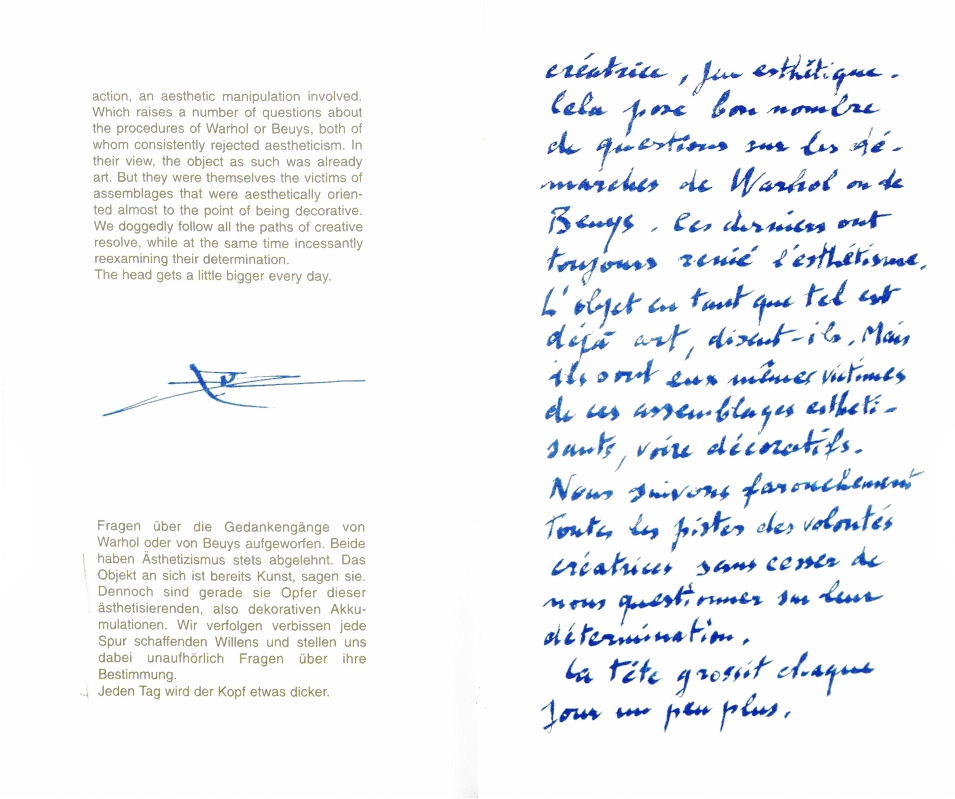 action, an aesthetic manipulation involved.
Which raises a number of questions about
the procedures of Warhol or Beuys, both of
whom consistently rejected aestheticism. In
their view, the object as such was already
art. But they were themselves the victims of
assemblages that were aesthetically orien-
ted almost to the point of being decorative.
We doggedly follow all the paths of creative
resolve, while at the same time incessantly
reexamining their determination.
The head gets a little bigger every day.
Fragen über die Gedankengänge von
Warhol oder von Beuys aufgeworfen. Beide
haben Ästhetizismus stets abgelehnt. Das
Objekt an sich ist bereits Kunst, sagen sie.
Dennoch sind gerade sie Opfer dieser
ästhetisierenden, also dekorativen Akku-
mulationen. Wir verfolgen verbissen jede
Spur schaffenden Willens und stellen uns
dabei unaufhörlich Fragen über ihre
Bestimmung.
Jeden Tag wird der Kopf etwas dicker.
créatrice, jeu esthétique.
Cela pose bon nombre
de questions sur les dé-
marches de Warhol ou de
Beuys. Ces derniers ont
toujours renié l'esthétisme.
L'objet en tant que tel est
déjà art, disent-ils. Mais
ils sont eux mêmes victimes
de ces assemblages estheti-
sants, voire décoratifs.
Nous suivons farouchement
toutes les pistes des volontés
créatrices sans cesser de
nous questionner sur leur
détermination.
La tête grossit chaque
jour un peu plus.